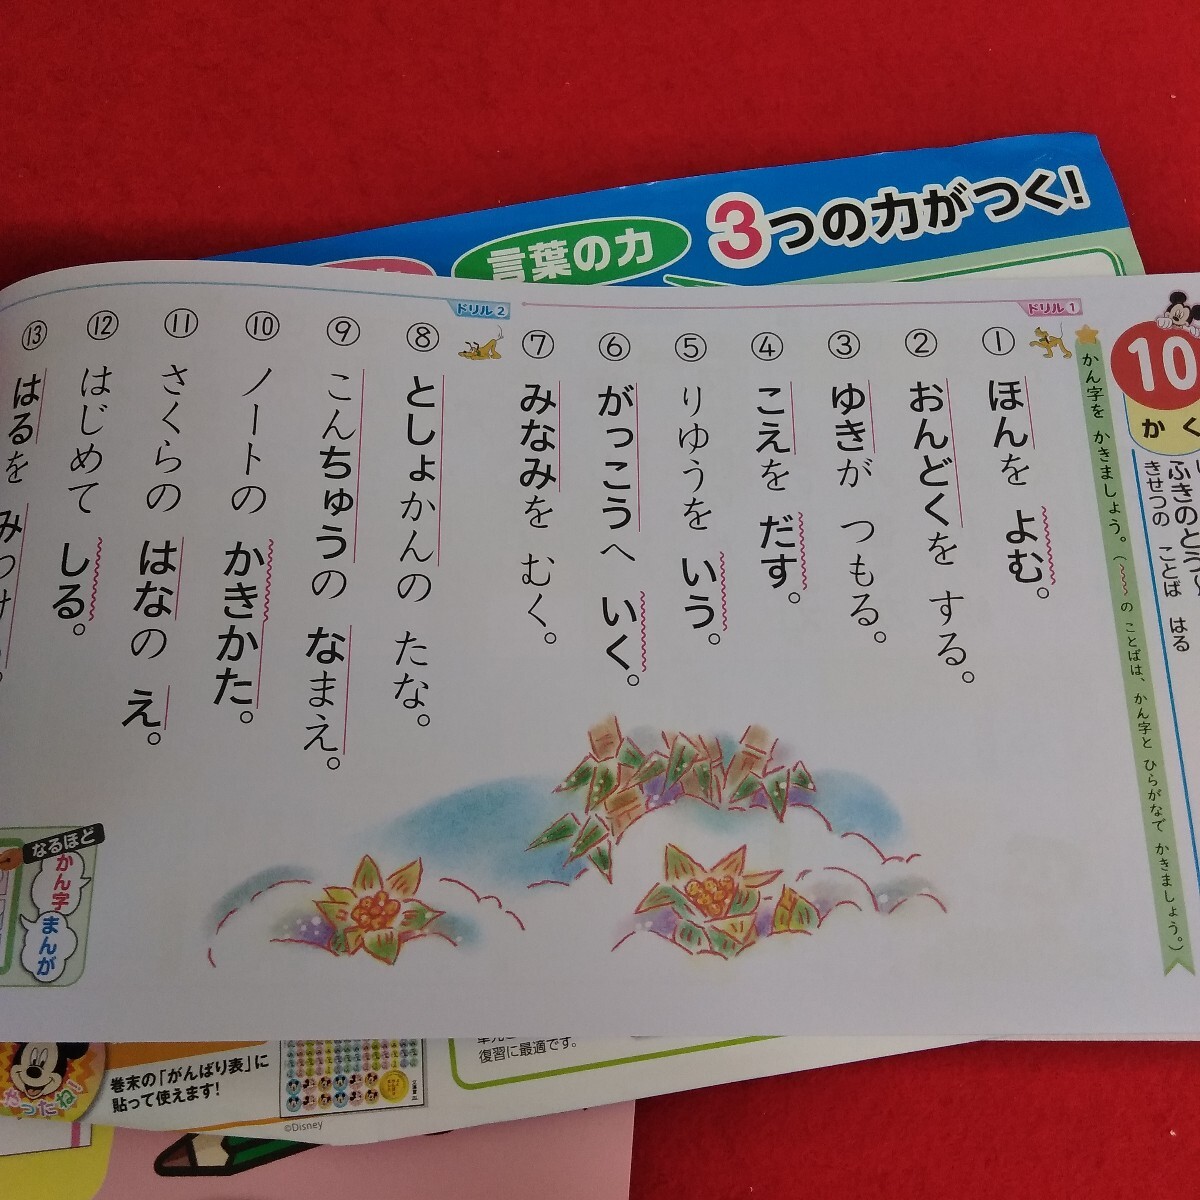 3つの力がつく!
言葉の力
10
かく
ふきのとう
きせつの ことば はる
かん字を かきましょう。(〰の ことばは、かん字と ひらがなで かきましょう。)
ドリル1
① ほんを よむ。
② おんどくを する。
③ ゆきが つもる。
④ こえを だす。
⑤ りゆうを いう。
⑥ がっこうへ いく。
⑦ みなみを むく。
ドリル2
⑧ としょかんの たな。
⑨ こんちゅうの なまえ。
⑩ ノートの かきかた。
⑪ さくらの はなの え。
⑫ はじめて しる。
⑬ はるを みつけ
なるほど
かん字
まんが
巻末の「がんばり表」に
貼って使えます!
©Disney
復習に最適です。